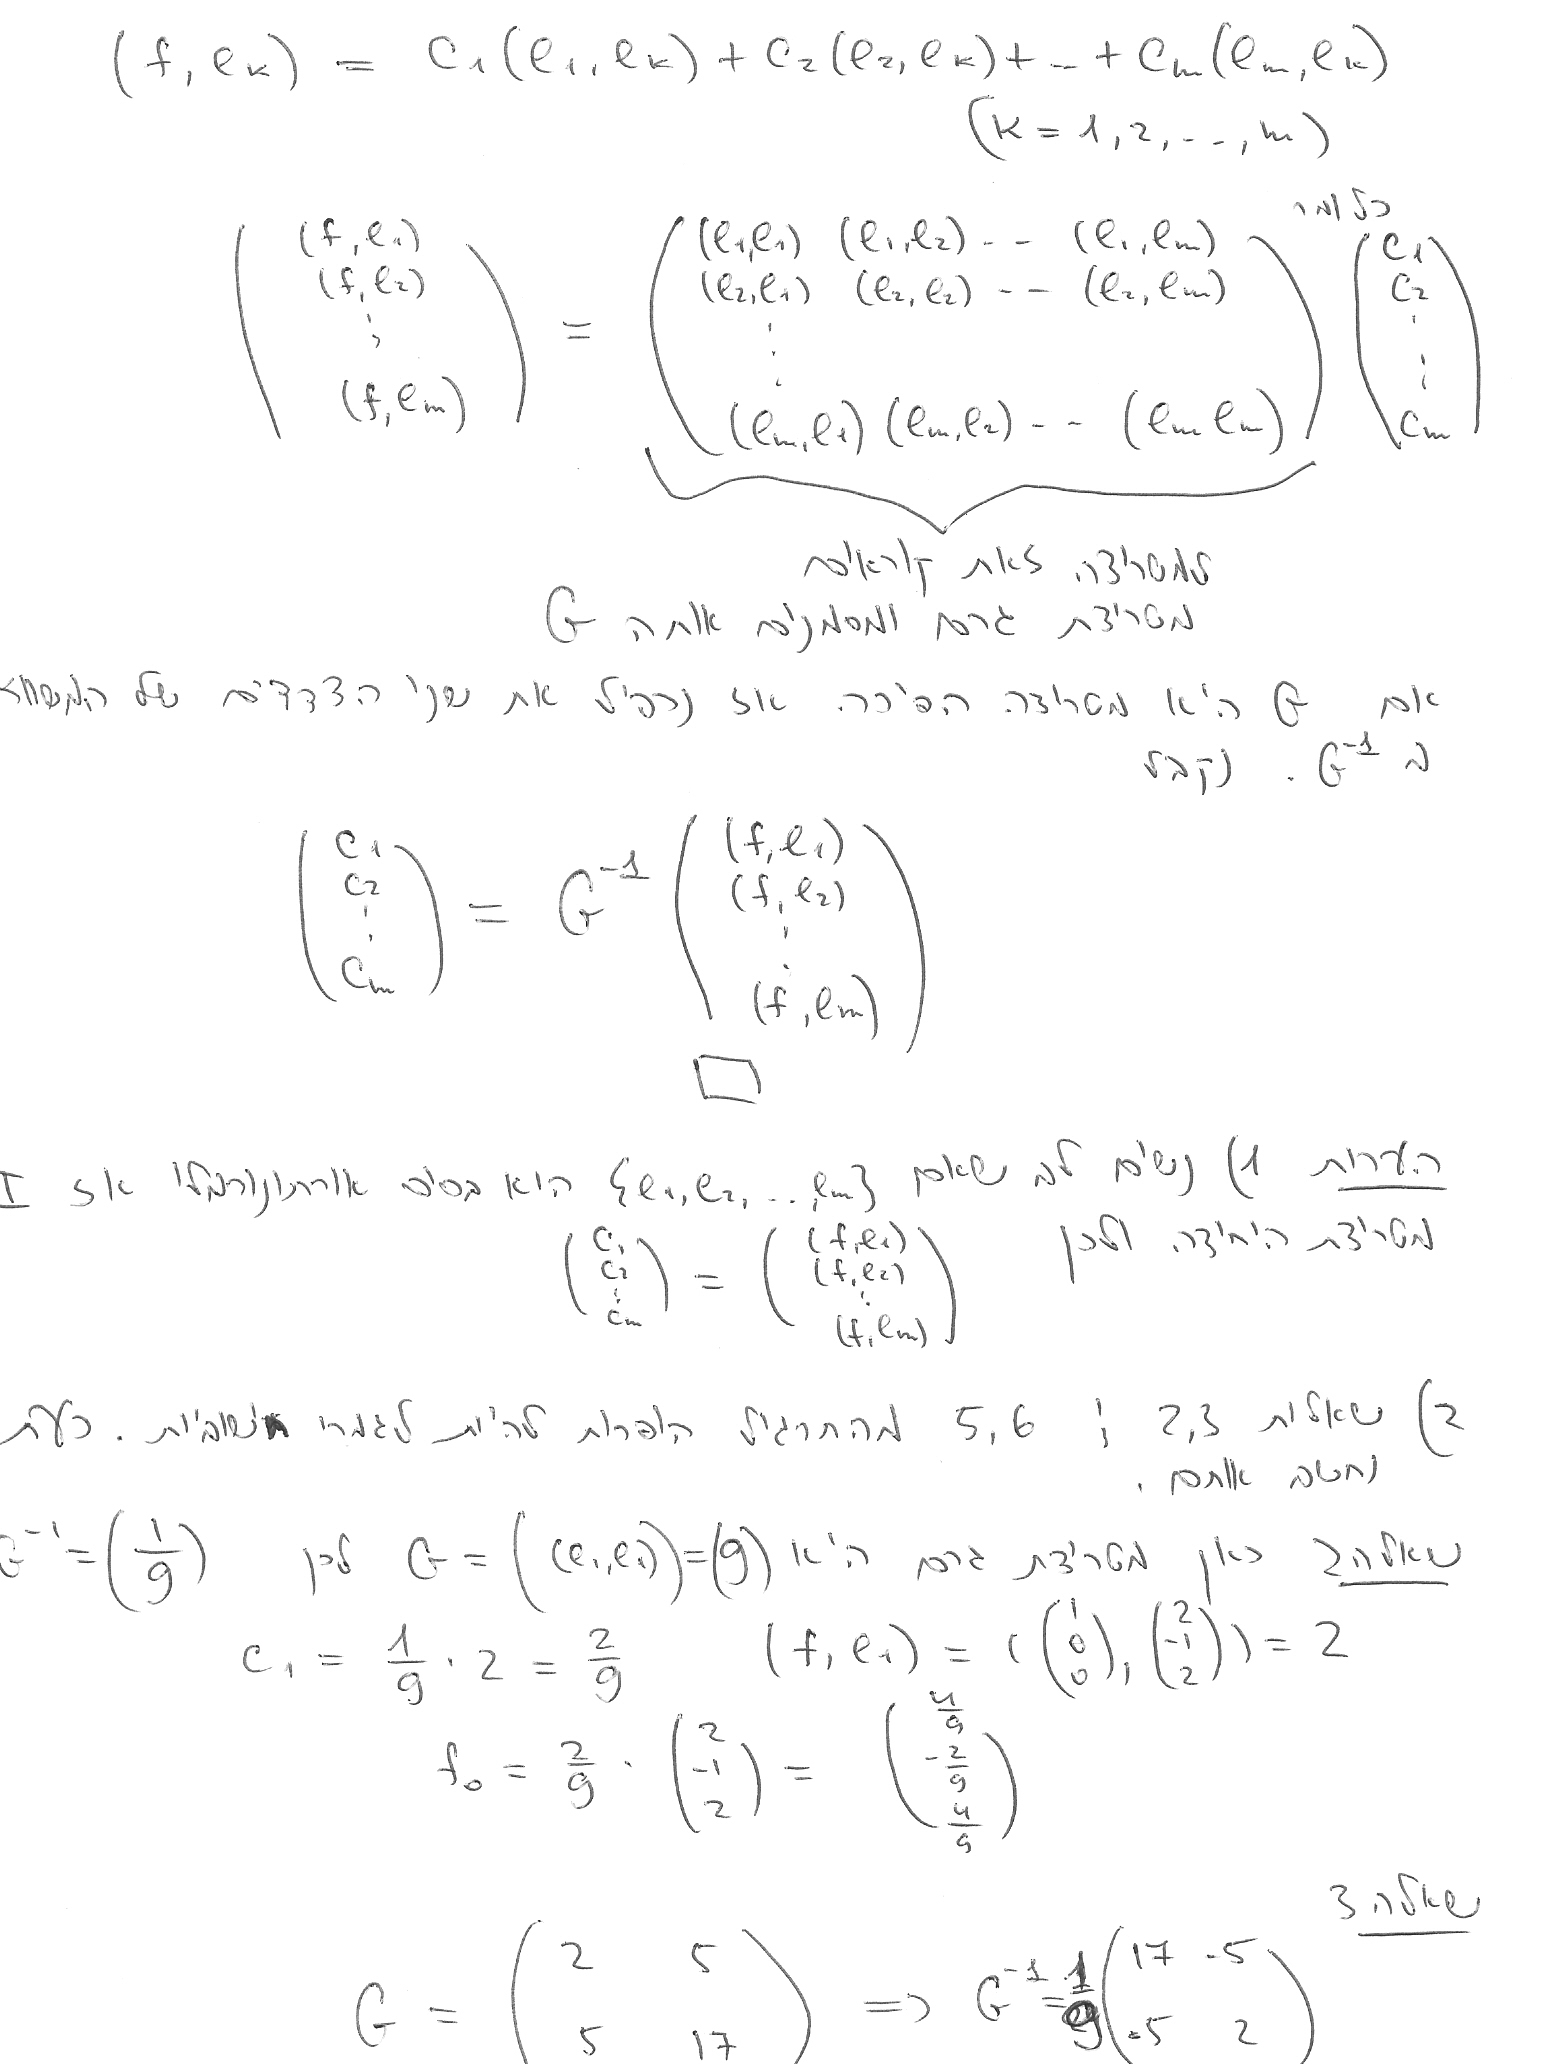 (f, e_k) = c_1(e_1, e_k) + c_2(e_2, e_k) + .. + c_m(e_m, e_k)
(k = 1, 2, ..., m)
כלומר
( (f,e_1) (f,e_2) ⋮ (f,e_m) ) = ( (e_1,e_1) (e_1,e_2) -- (e_1,e_m) ; (e_2,e_1) (e_2,e_2) -- (e_2,e_m) ; ⋮ ; (e_m,e_1) (e_m,e_2) -- (e_m e_m) ) ( c_1 c_2 ⋮ c_m )
למטריצה זאת קוראים
מטריצת גרם ומסמנים אותה G
אם G היא מטריצה הפיכה אז נכפיל את שני הצדדים של
ב G^{-1} . נקבל
( c_1 c_2 ⋮ c_m ) = G^{-1} ( (f,e_1) (f,e_2) ⋮ (f,e_m) )
□
הערות 1) נשים לב שאם {e_1, e_2, .., e_m} הוא בסיס אורתונורמלי אז I
מטריצת היחידה ולכן ( c_1 c_2 ⋮ c_m ) = ( (f,e_1) (f,e_2) ⋮ (f,e_m) )
2) שאלות 2,3 ; 5,6 מהתרגיל הופכות להיות לגמרי חישוביות. כעת
נחשב אותם.
שאלה 2 כאן מטריצת גרם היא G = ((e_1,e_1)) = (9) לכן G^{-1} = (1/9)
(f, e_1) = ( (1 0 0), (2 -1 2) ) = 2 c_1 = 1/9 · 2 = 2/9
f_0 = 2/9 · (2 -1 2) = (4/9 -2/9 4/9)
שאלה 3
G = ( 2 5 ; 5 17 ) => G^{-1} = 1/9 ( 17 -5 ; -5 2 )